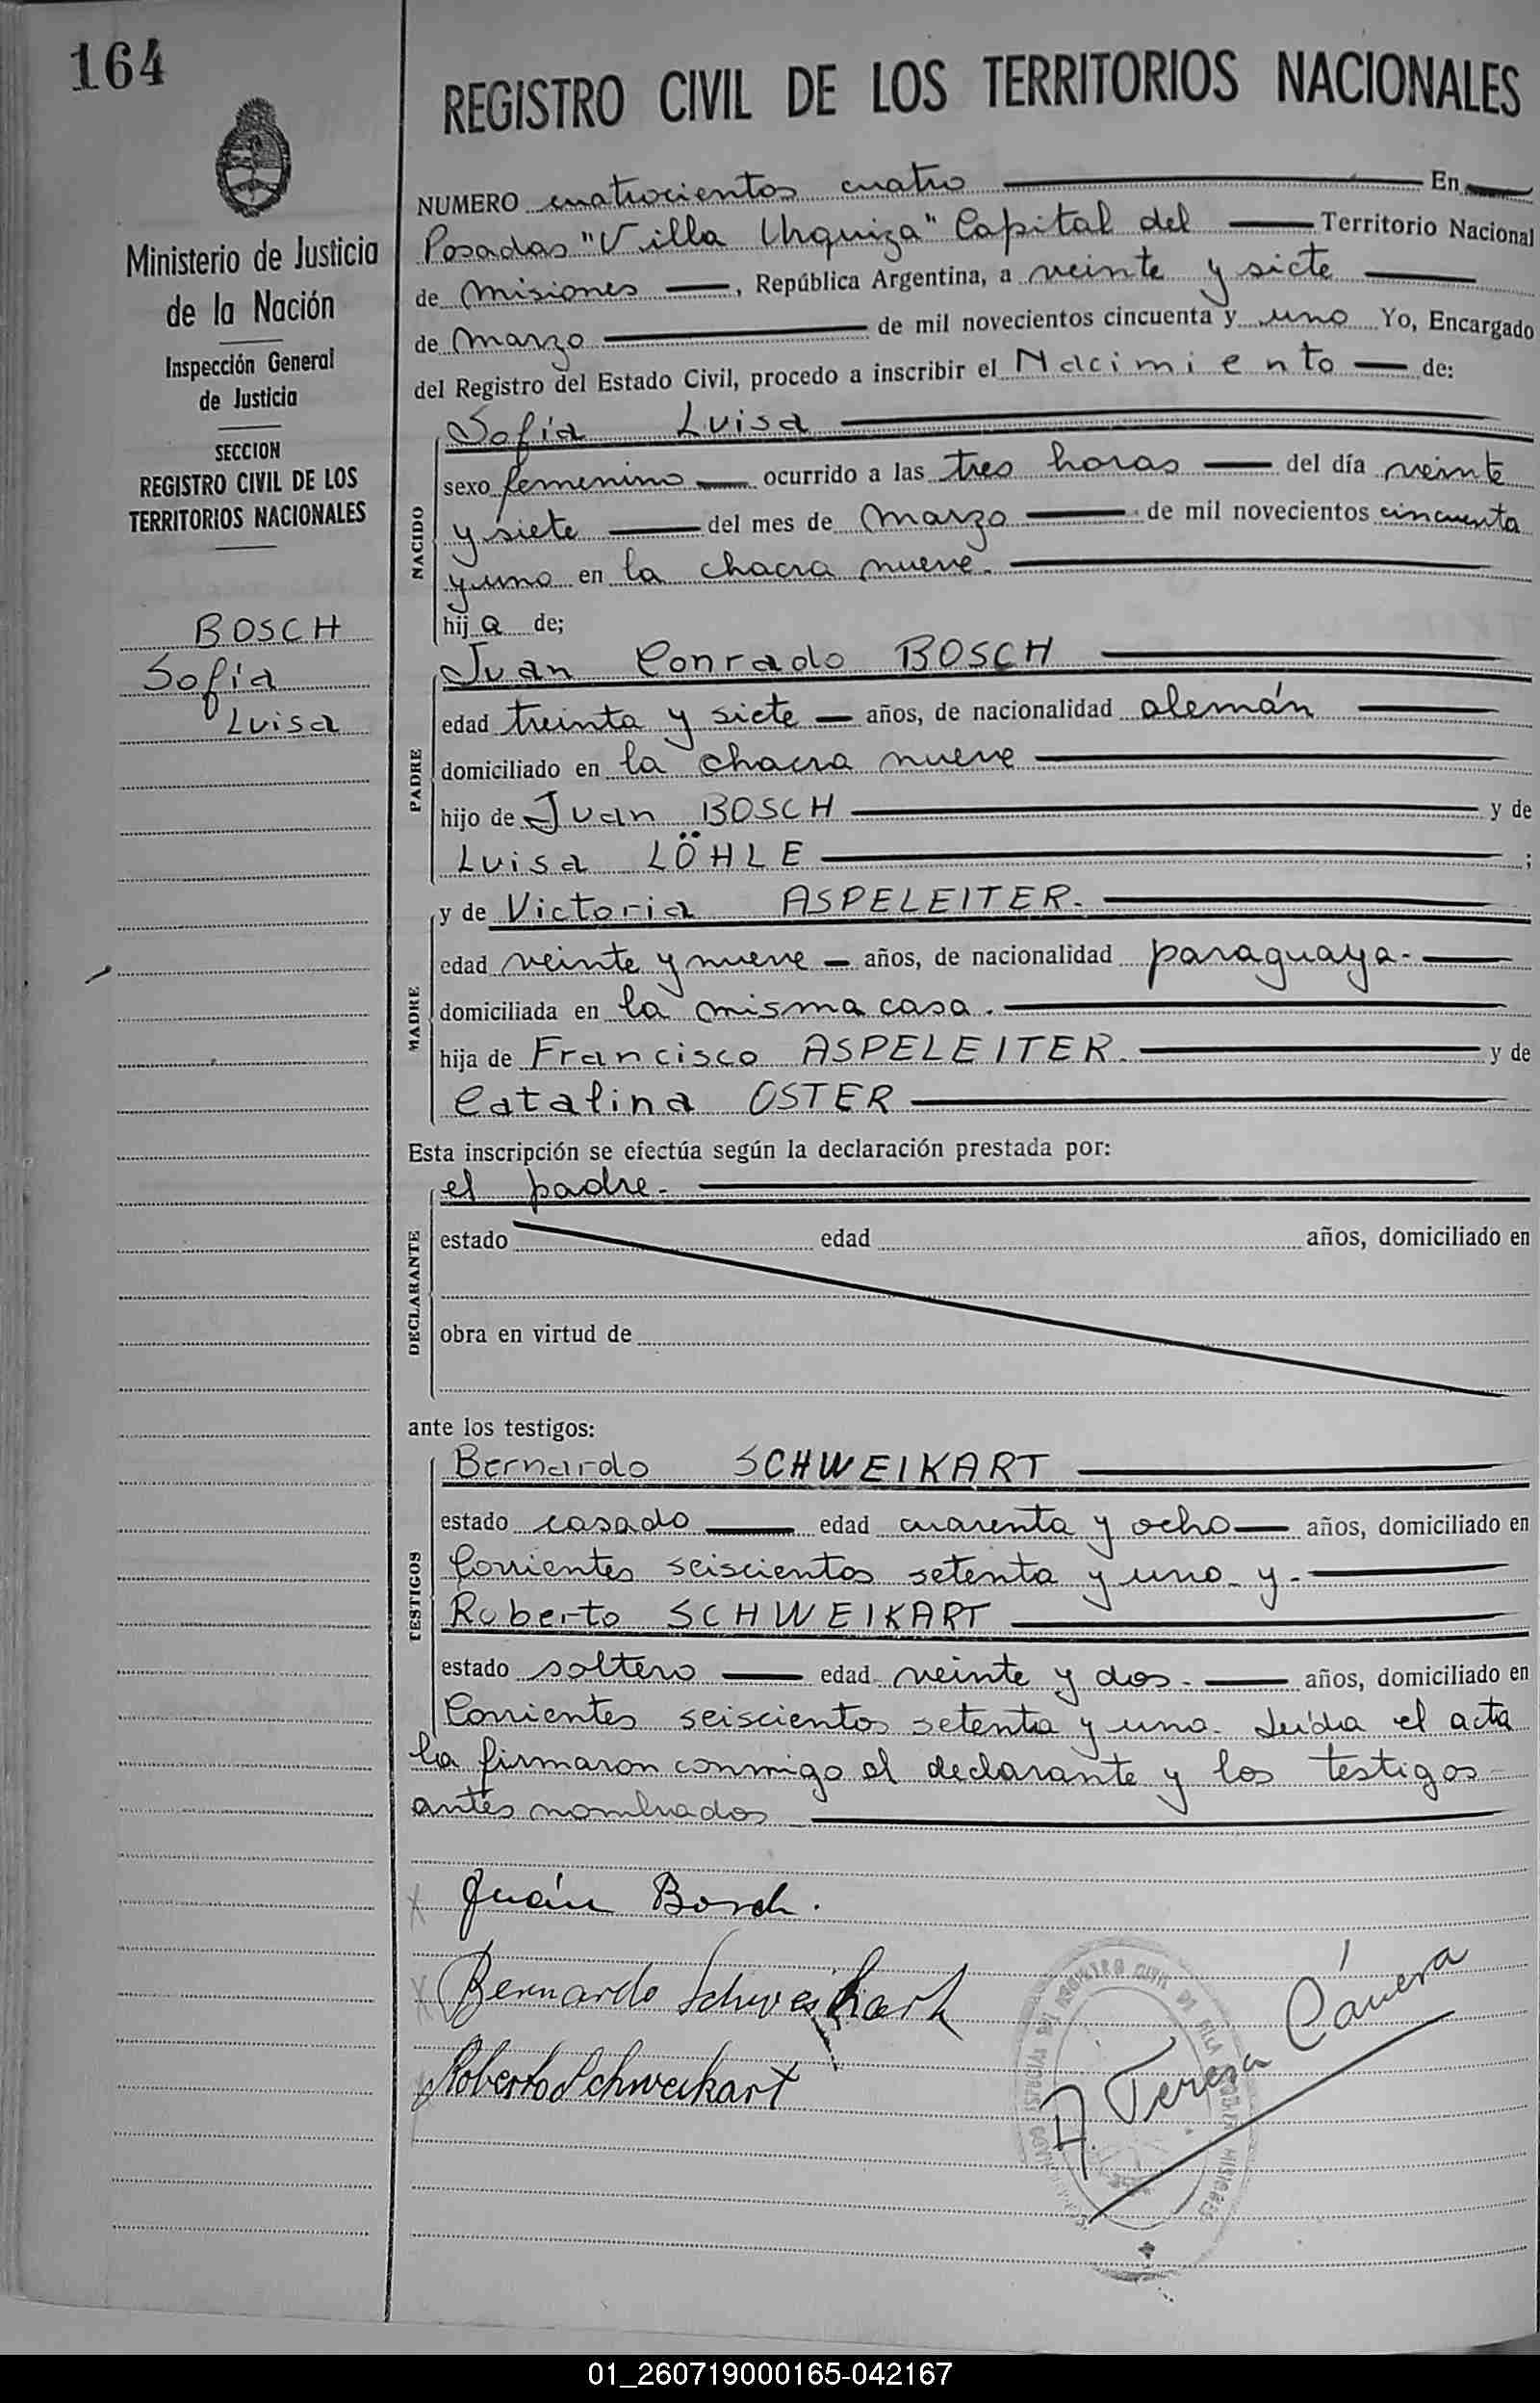 164
REGISTRO CIVIL DE LOS TERRITORIOS NACIONALES
Ministerio de Justicia
de la Nación
Inspección General
de Justicia
SECCION
REGISTRO CIVIL DE LOS
TERRITORIOS NACIONALES
BOSCH
Sofía
Luisa
NUMERO cuatrocientos cuatro En
Posadas "Villa Urquiza" Capital del Territorio Nacional
de Misiones, República Argentina, a veinte y siete
de Marzo de mil novecientos cincuenta y uno Yo, Encargado
del Registro del Estado Civil, procedo a inscribir el Nacimiento de:
NACIDO
Sofía Luisa
sexo femenino ocurrido a las tres horas del día veinte
y siete del mes de Marzo de mil novecientos cincuenta
y uno en la chacra nueve.
hija de;
PADRE
Juan Conrado BOSCH
edad treinta y siete años, de nacionalidad alemán
domiciliado en la chacra nueve
hijo de Juan BOSCH y de
Luisa LÖHLE ;
MADRE
y de Victoria ASPELEITER.
edad veinte y nueve años, de nacionalidad paraguaya.
domiciliada en la misma casa.
hija de Francisco ASPELEITER. y de
Catalina OSTER
Esta inscripción se efectúa según la declaración prestada por:
DECLARANTE
el padre.
estado edad años, domiciliado en
obra en virtud de
ante los testigos:
TESTIGOS
Bernardo SCHWEIKART
estado casado edad cuarenta y ocho años, domiciliado en
Corrientes seiscientos setenta y uno y.
Roberto SCHWEIKART
estado soltero edad veinte y dos. años, domiciliado en
Corrientes seiscientos setenta y uno. Leída el acta
la firmaron conmigo el declarante y los testigos
antes nombrados
Juan Bosch.
Bernardo Schweikart
Roberto Schweikart
A. Teresa Cánera
01_260719000165-042167